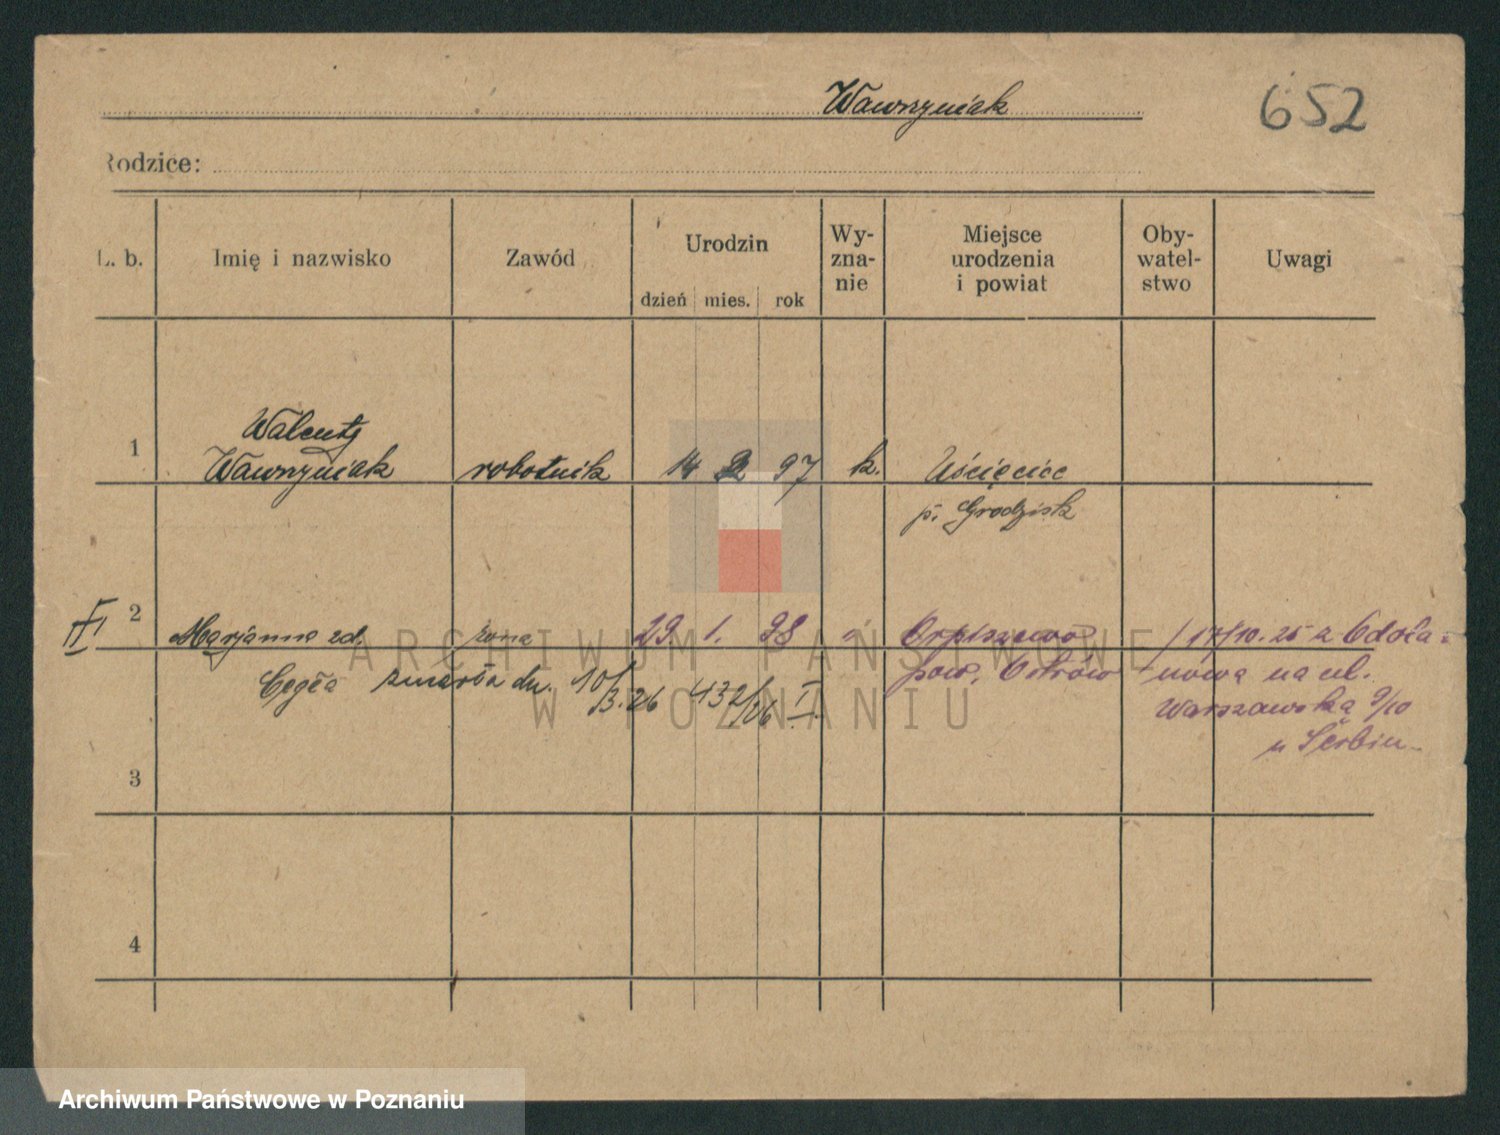 Wawrzyniak
652
Rodzice:
L. b.
Imię i nazwisko
Zawód
Urodzin
dzień mies. rok
Wy-
zna-
nie
Miejsce
urodzenia
i powiat
Oby-
watel-
stwo
Uwagi
1
Walenty
Wawrzyniak
robotnik
14 2 97
k.
Uścięciec
p. Grodzisk
2
II
Marjanna zd.
Cegła
żona
29. 1. 98
"
Orpiszewo
pow. Ostrów
17/10.25 z Odola-
nowa na ul.
Warszawska 9/10
u Serbin
zmarła dn. 10/3.26 432/26 I.
3
4
ARCHIWUM PAŃSTWOWE
W POZNANIU
Archiwum Państwowe w Poznaniu